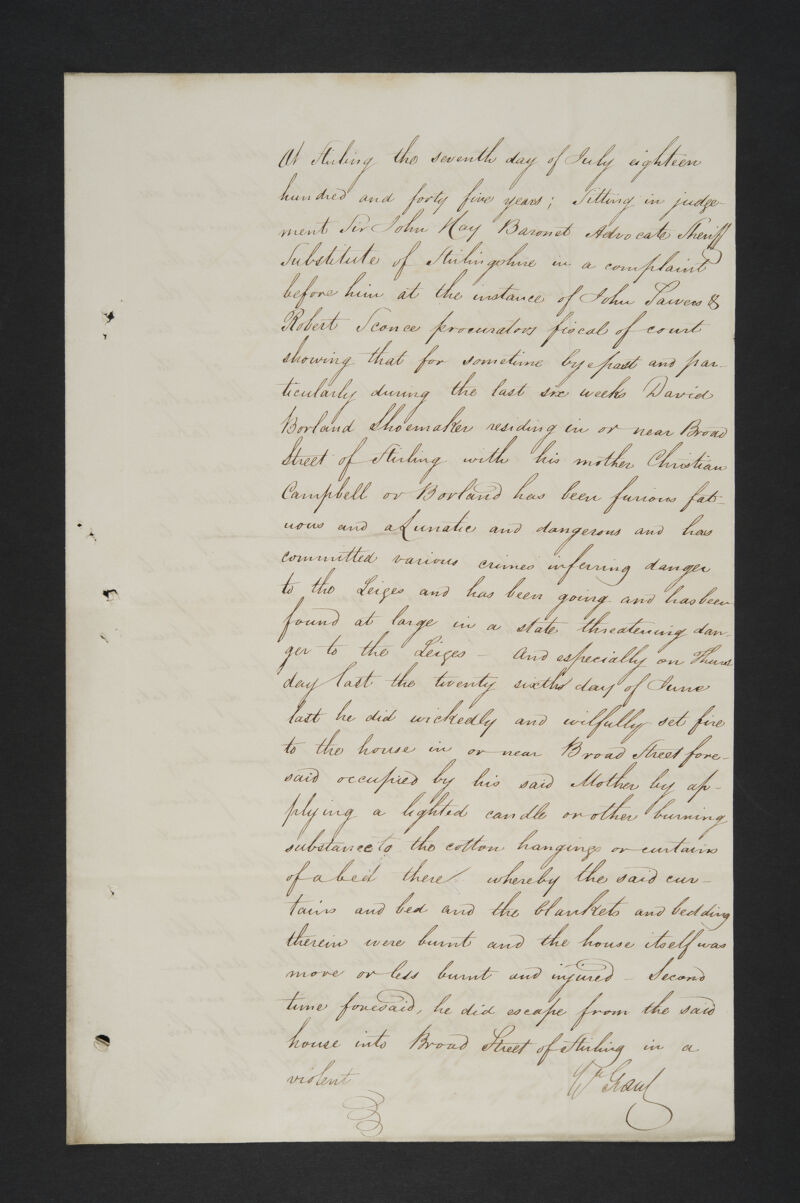 At Stirling the seventh day of July eighteen
hundred and forty five years; Sitting in judge-
ment Sir John Hay Baronet Advocate Sheriff
Substitute of Stirlingshire in a complaint
before him at the instance of John Sawers &
Robert Sconce procurators fiscal of court
showing that for sometime byepast and par-
ticularly during the last six weeks David
Borland Shoemaker residing in or near Broad
Street of Stirling with his mother Christian
Campbell or Borland has been furious fat-
uous and a Lunatic and dangerous and has
committed various crimes inferring danger
to the Leiges and has been going and has been
found at large in a state threatening dan-
ger to the Leiges - And especially on Thurs
day last the twenty sixth day of June
last he did wickedly and wilfully set fire
to the house in or near Broad Street fore-
said occupied by his said Mother by ap-
plying a lighted candle or other burning
substance to the cotton hangings or curtains
of a bed there whereby the said cur-
tains and bed and the blankets and bedding
therein were burnt and the house itself was
more or less burnt and injured - Second
time foresaid, he did escape from the said
house into Broad Street of Stirling in a
violent